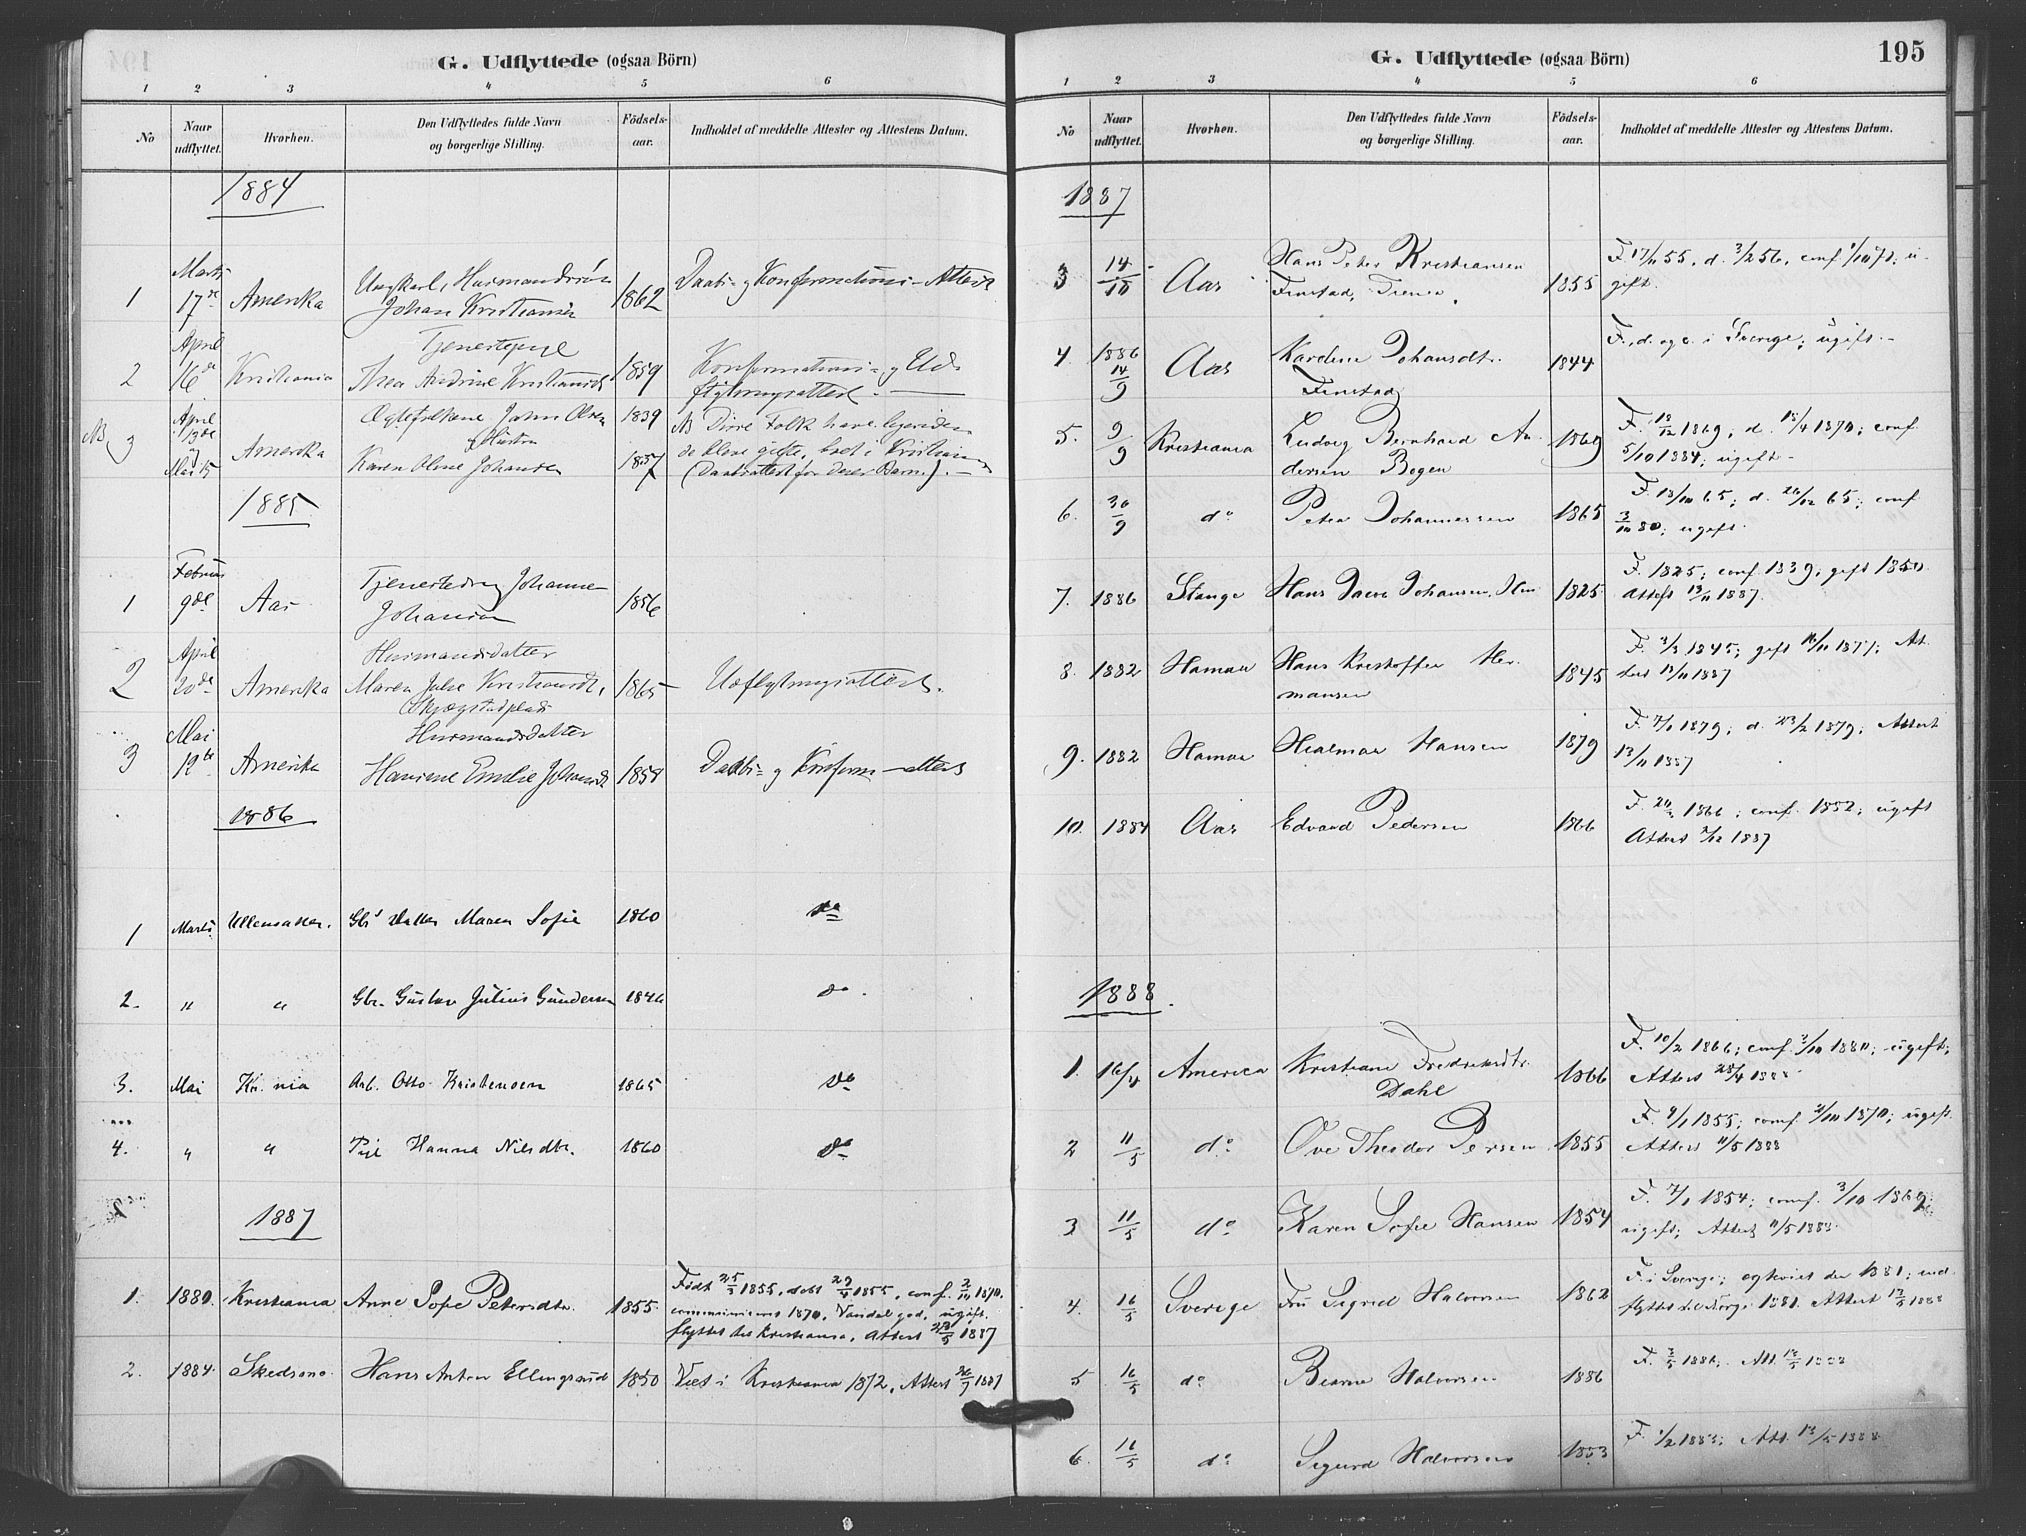 G. Udflyttede (ogsaa Börn)
1 2 3 4 5 6
No
Naar udflyttet.
Hvorhen.
Den Udflyttedes fulde Navn
og borgerlige Stilling.
Födsels-
aar.
Indholdet af meddelte Attester og Attestens Datum.
1884
1 Marts 17de Amerika Ungkarl, Husmandssøn
Johan Kristiansen 1862 Daabs- og Konfirmations-Attest
2 April 16de Kristiania Tjenestepige
Thea Andrine Kristiansdt 1859 Konfirmations- og Ud-
flytningsattest.
NB 3 April 19de Mai Amerika Ægtefolkene John Olsen 1839
og Hustru
Karen Oline Johansen 1837
NB Disse Folk have ligesiden
de bleve gifte, boet i Kristiania
(Daabsattest for deres Børn).
1885
1 Februar 9de Aas Tjenestedreng Johannes
Johansen 1856
2 April 20de Amerika Husmandsdatter
Maren Julie Kristiansdt.
Skjøgstadplads 1865 Udflytningsattest.
3 Mai 12te Amerika Husmandsdatter
Hansine Emilie Johansdt 1858 Daabs- og Konfirm-attest
1886
1 Marts Ullensaker. Gbr Datter Maren Sofie 1860 do
2. " " Gbr. Gustav Julius Gundersen 1846 do.
3. Mai Kr.nia Arb. Otto Kristensen 1865 do
4. " " Pige Hanna Nilsdtr. 1860 do
1887
1. 1880. Kristiania Anne Sofie Petersdtr. 1855. Født 25/3 1855, døbt 29/4 1855, conf. 2/10 1870.
communiceret 1870, Vandel god, ugift.
flyttet til Kristiania, Attest 23/5 1887
2. 1884. Skedsmo. Hans Anton Ellingsrud 1850 Viet i Kristiania 1872, Attest 26/7 1887
G. Udflyttede (ogsaa Börn)
195
1 2 3 4 5 6
No
Naar udflyttet.
Hvorhen.
Den Udflyttedes fulde Navn
og borgerlige Stilling.
Födsels-
aar.
Indholdet af meddelte Attester og Attestens Datum.
1887
3 14/10 Aas Hans Peter Kristiansen
Finstad, Tjener. 1855 F. 17/11 55, d. 3/2 56, conf 1/10 71; u-
gift.
4 1886 14/9 Aas Kardine Johansdtr.
Finstad 1844 F., d. og c. i Sverige; ugift.
5. 9/9 Kristiania Ludvig Bernhard An-
dersen Bøgen 1869 F. 12/12 1869, d. 18/4 1870; conf.
5/10 1884; ugift
6. 30/9 do Peter Johannessen 1865 F. 13/10 65; d. 26/12 65; conf
3/10 80; ugift.
7. 1886 Stange Hans Johansen, 1825 F. 1825; conf 1839; gift 1850.
Attest 13/11 1887.
8. 1882 Hamar Hans Kristoffer Her-
mansen 1845 F. 3/3 1845; gift 16/11 1877; At-
test 13/11 1887
9. 1882 Hamar Hialmar Hansen 1879 F. 7/1 1879; d. 23/2 1879; Attest
13/11 1887
10. 1884 Aas Edvard Pedersen 1866 F. 1866; conf. 1882; ugift
Attest 2/12 1887
1888.
1. 16/4 America Kristiane Fredriksdtr.
Dahl 1866 F. 10/2 1866; conf. 3/10 1880; ugift;
Attest 28/4 1888
2 11/5 do Ove Theodor Persen 1855 F. 9/1 1855; conf. 2/10 1870; ugift.
Attest 11/5 1888
3 11/5 do Karen Sofie Hansen 1854 F. 7/1 1854; conf. 3/10 1869;
ugift; Attest 11/5 1888.
4. 16/5 Sverige Fru Sigrid Halvorsen 1862 F. i Sverige; og viet der 1881; ind-
flyttet til Norge 1881. Attest 13/5 1888
5 16/5 do Bjarne Halvorsen 1886 F. 3/5 1886; Att. 13/5 1888
6. 16/5 do Sigurd Halvorsen 1883 F. 1/2 1883; Att. 13/5 1888